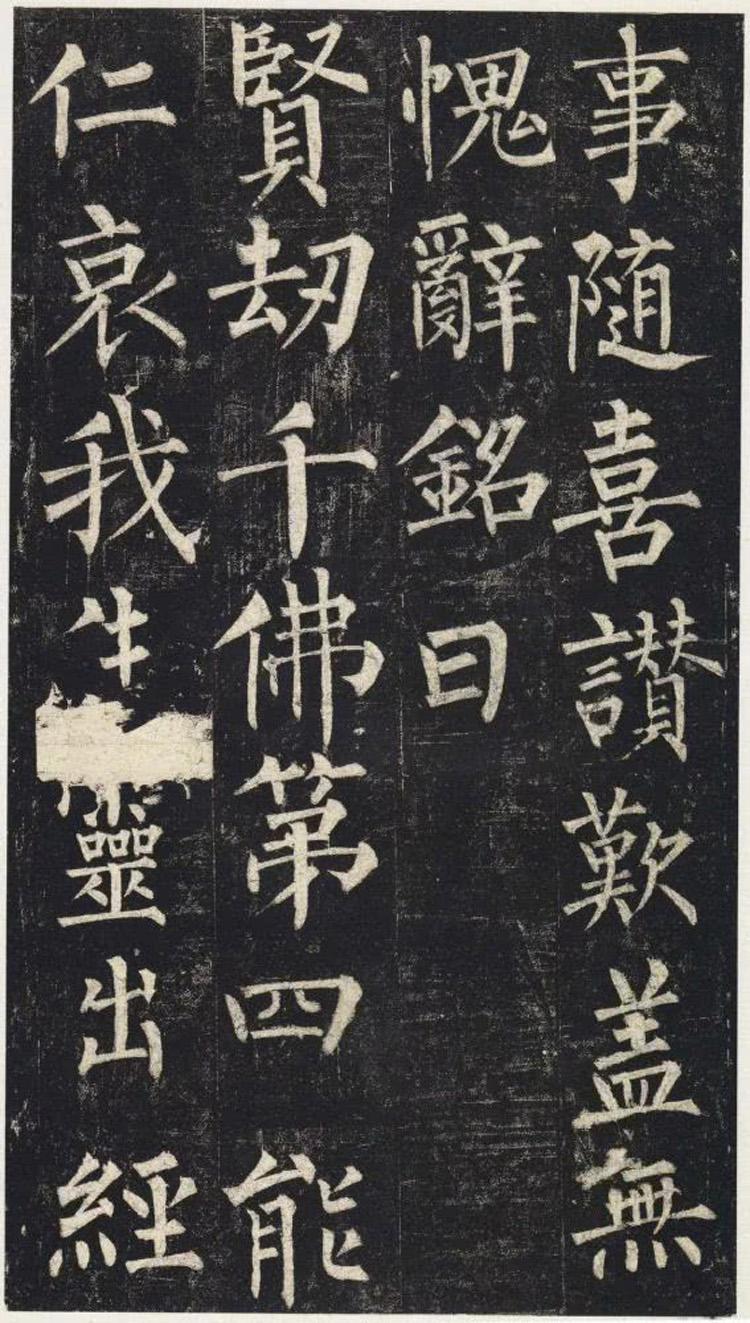 事隨喜讃歎盖無
愧辭銘曰
賢刧千佛第四能
仁哀我生靈出經